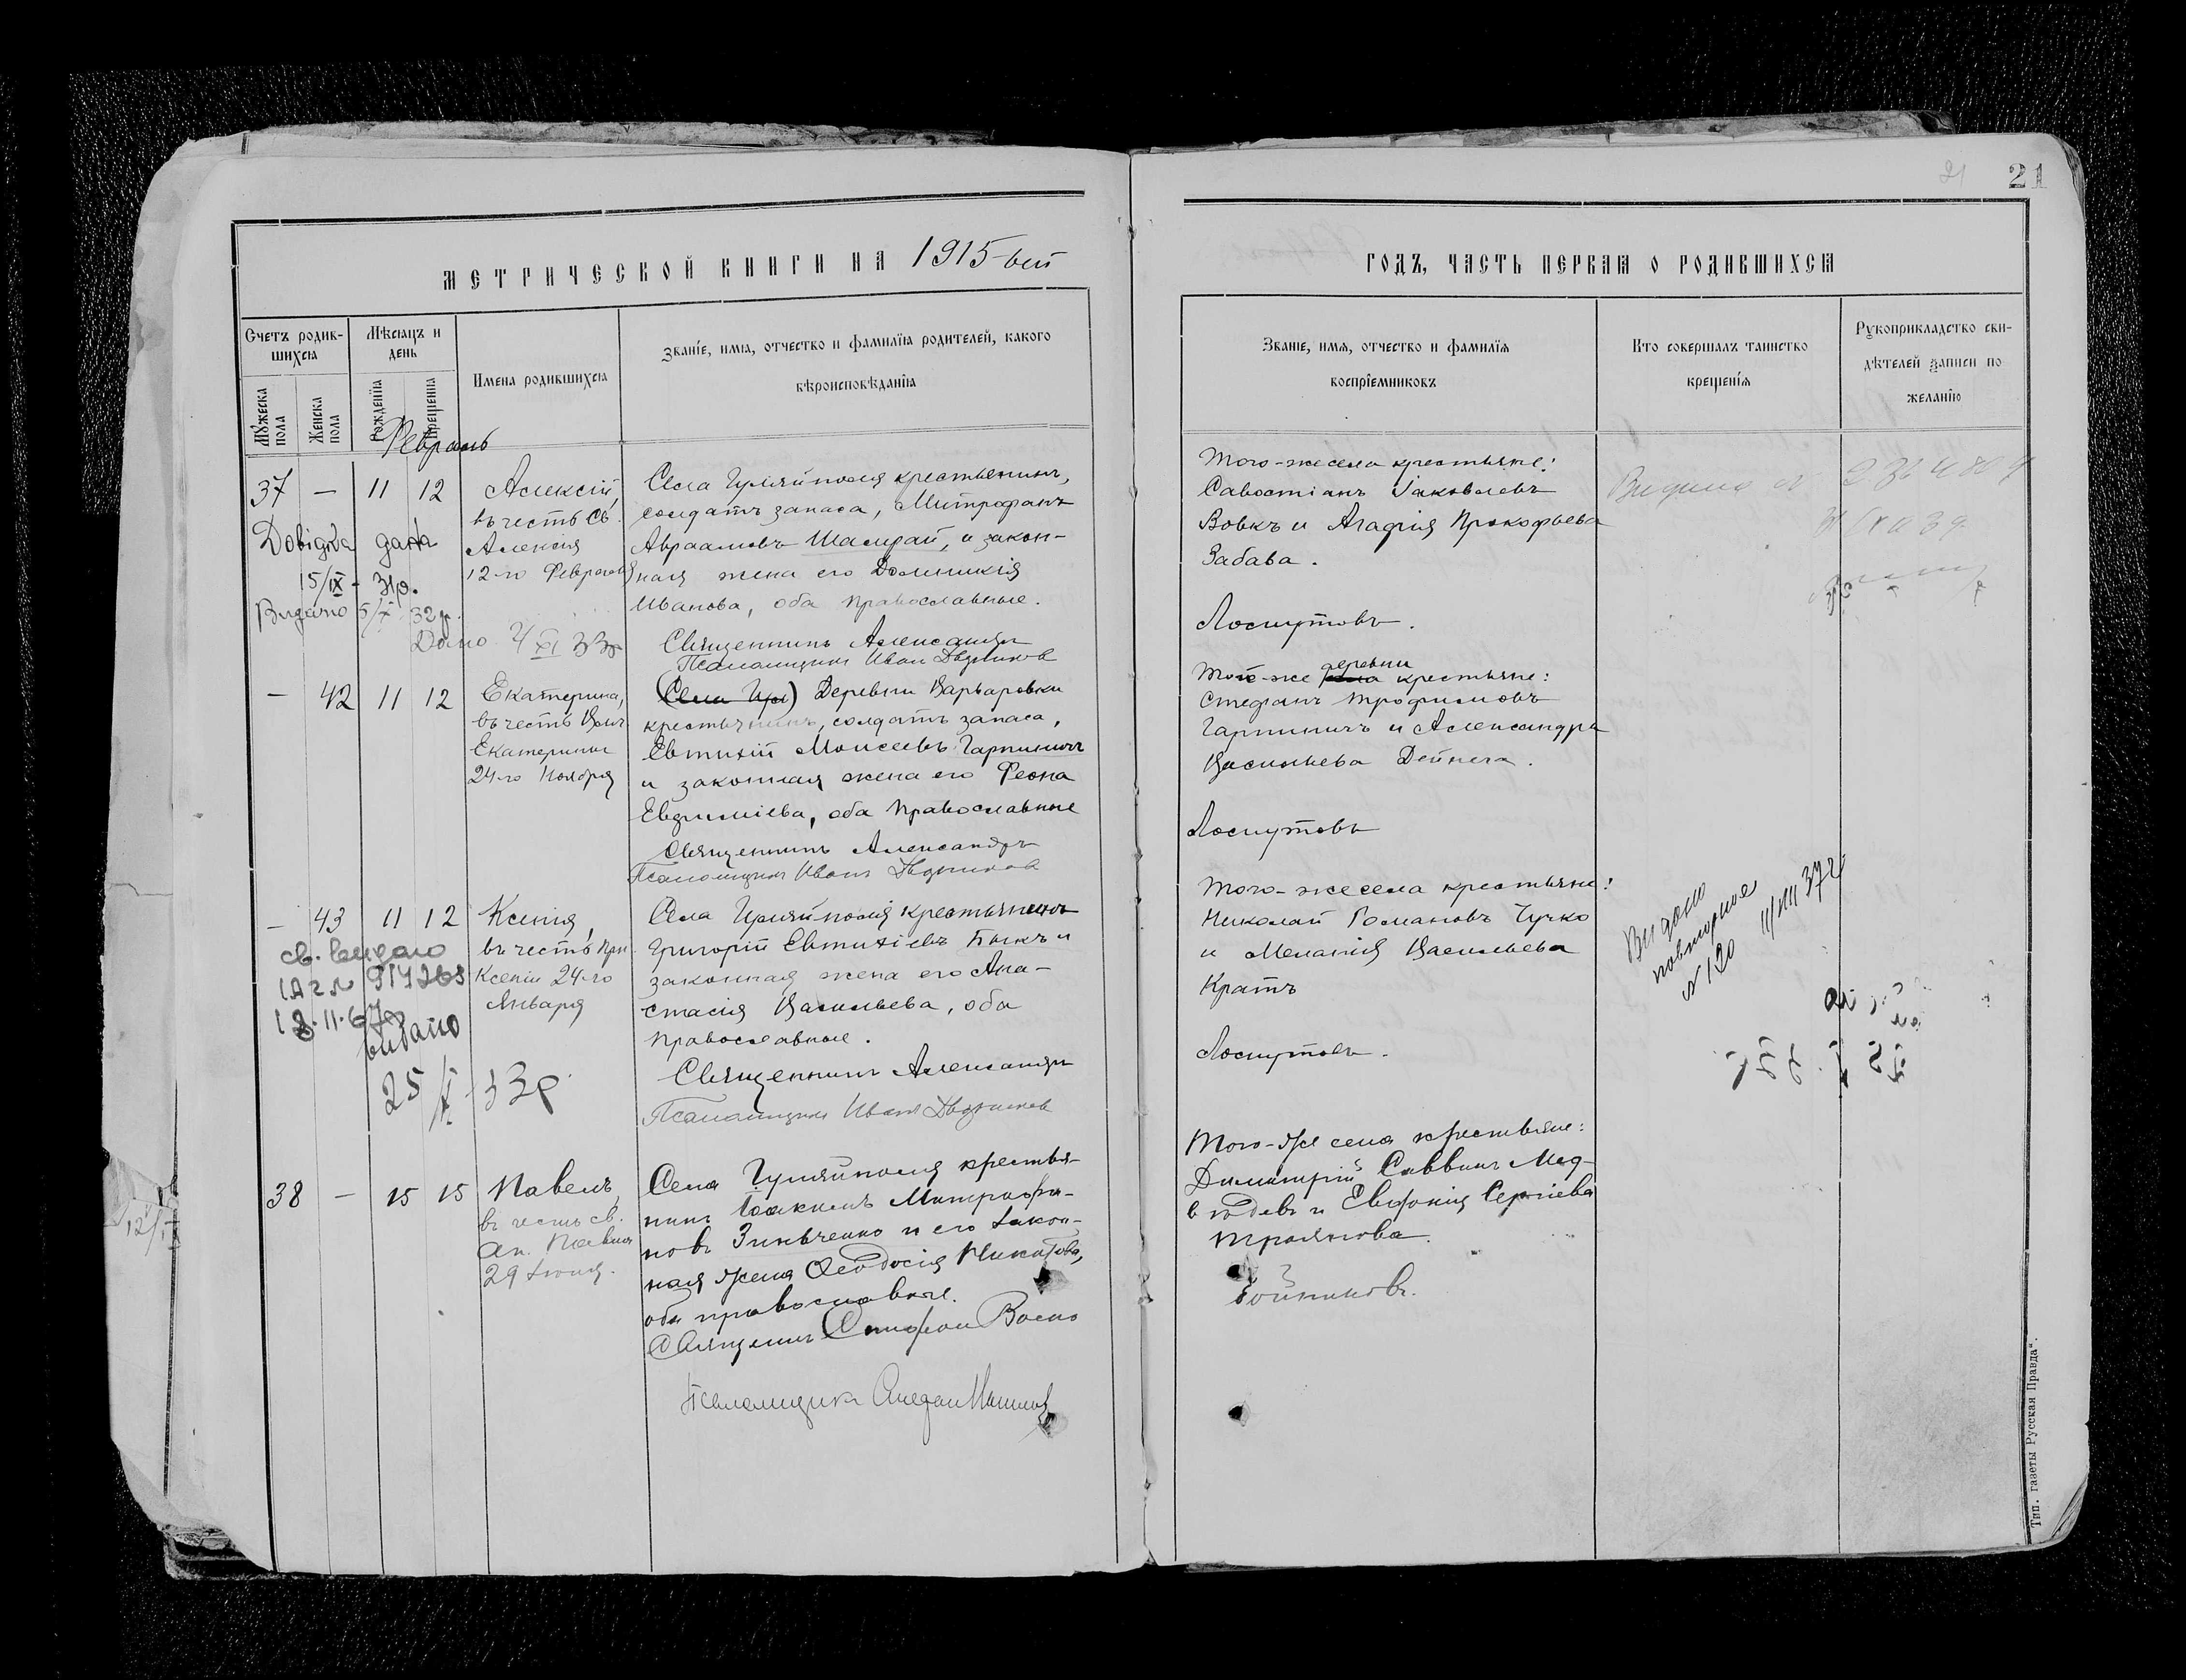 21
МЕТРИЧЕСКОЙ КНИГИ НА 1915-ый
ГОДЪ, ЧАСТЬ ПЕРВАЯ О РОДИВШИХСЯ
Счетъ родив-
шихся
Мужеска
пола
Женска
пола
Мѣсяцъ и
день
Рожденія
Крещенія
Имена родившихся
Званіе, имя, отчество и фамилія родителей, какого
вѣроисповѣданія
Званіе, имя, отчество и фамилія
воспріемниковъ
Кто совершалъ таинство
крещенія
Рукоприкладство сви-
дѣтелей записи по
желанію
Февраль
37 — 11 12
Алексій,
въ честь Св.
Алексія
12-го Февраля
Довідка дана
15/IX - 31р.
Видано 5/X 32р.
Дано 4/XI 33р
Села Гуляйполя крестьянинъ,
солдатъ запаса, Митрофанъ
Авраамовъ Шамрай, и закон-
ная жена его Домникія
Иванова, оба православные.
Священникъ Александръ
Псаломщикъ Иванъ
Того-же села крестьяне:
Савостіанъ Іаковлевъ
Вовкъ и Агафія Прокофьева
Забава.
Лоскутовъ.
— 42 11 12
Екатерина,
въ честь Вмч.
Екатерины
24-го Ноября
(Села Гул) Деревни Варваровки
крестьянинъ, солдатъ запаса,
Евтихій Моисеевъ Гарпиничъ
и законная жена его Феона
Евфиміева, оба православные
Священникъ Александръ
Псаломщикъ Иванъ
Того-же села деревни крестьяне:
Стефанъ Трофимовъ
Гарпиничъ и Александра
Васильева Дейнега.
Лоскутовъ
— 43 11 12
Ксенія,
въ честь Прп.
Ксеніи 24-го
Января
св. видано
видано
25/X - 33р
Села Гуляйполя крестьянинъ
Григорій Евтихіевъ Быкъ и
законная жена его Ана-
стасія Васильева, оба
православные.
Священникъ Александръ
Псаломщикъ Иванъ
Того-же села крестьяне:
Николай Романовъ Чучко
и Меланія Васильева
Кратъ
Лоскутовъ.
Видано
повторное
N 120
38 — 15 15
Павелъ,
въ честь св.
Ап. Павла
29 Іюня.
Села Гуляйполя крестья-
нинъ Іоакимъ Митрофа-
новъ Зинченко и его закон-
ная жена Феодосія Никитова,
оба православные.
Священникъ Стефанъ
Псаломщикъ
Того-же села крестьяне:
Димитрій Саввинъ Мед-
и Евфимія Сергіева
Троянова.
12/IX
Тип. газеты Русская Правда".